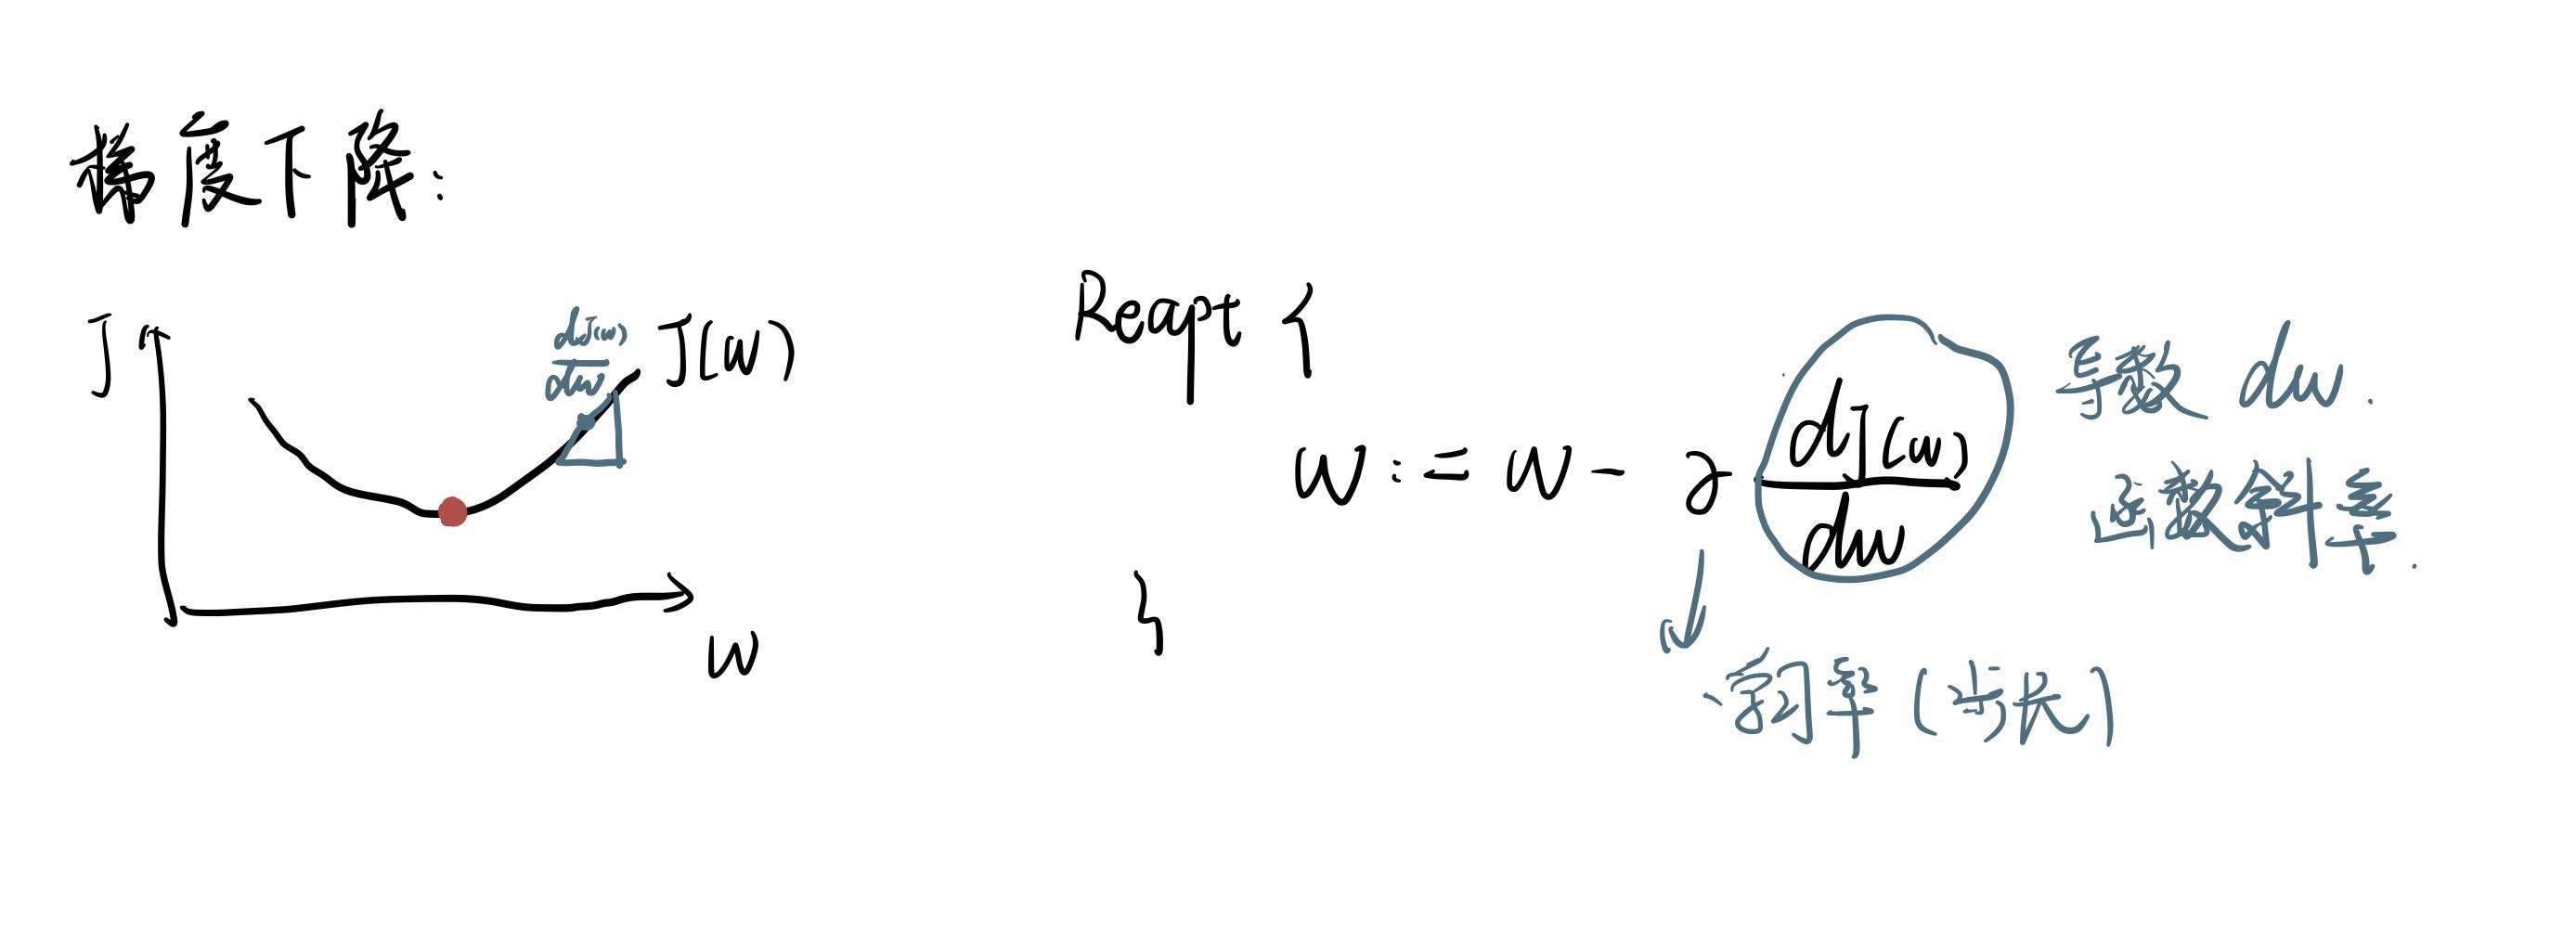 梯度下降:
J
dJ(w)
dw
J(w)
w
Reapt {
w := w - α dJ(w)
dw
}
导数 dw.
函数斜率.
学习率(步长)